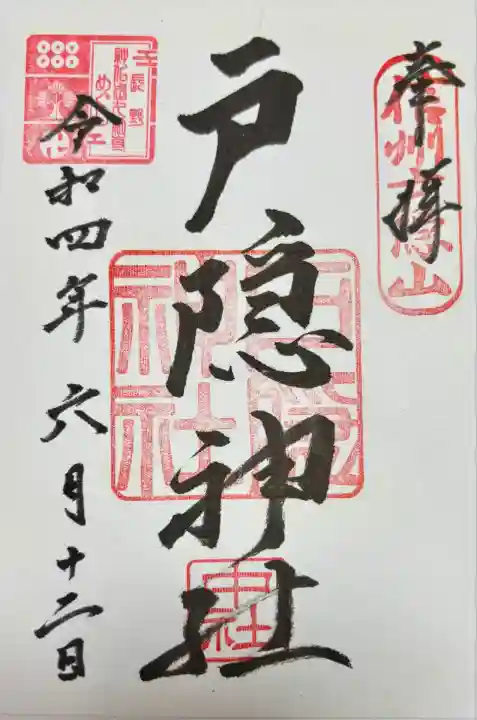 奉拝
信州戸隠山
戸隠神社
戸隠神社
中社
令和四年六月十二日